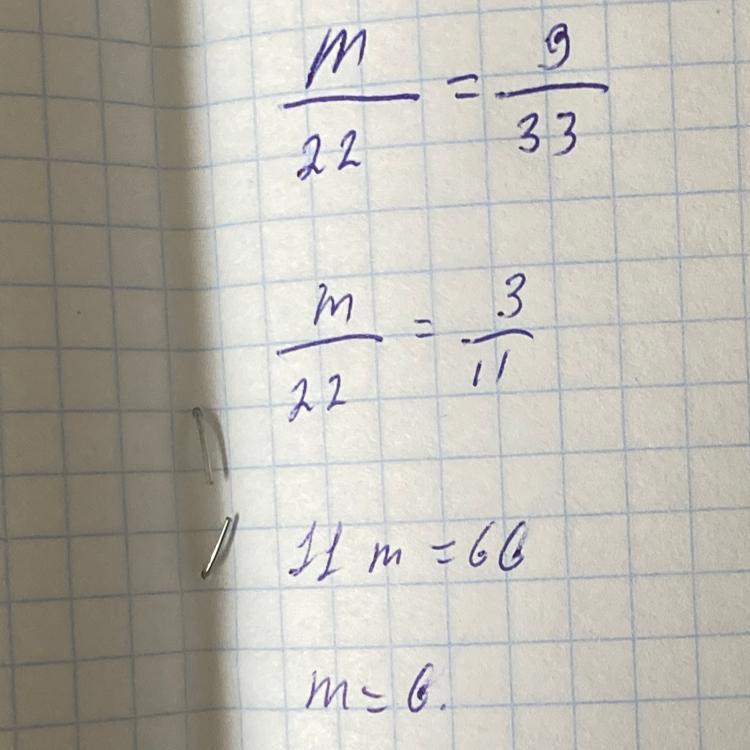 m/22 = 9/33
m/22 = 3/11
11 m = 66
m = 6.